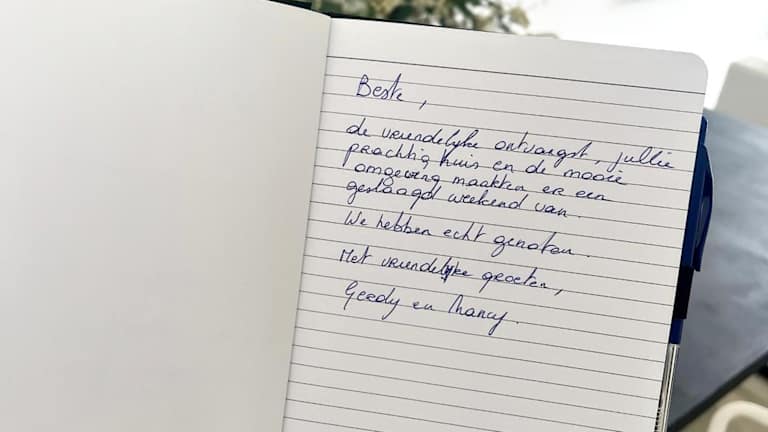 Beste,
de vriendelijke ontvangst, jullie
prachtig huis en de mooie
omgeving maakten er een
geslaagd weekend van.
We hebben echt genoten.
Met vriendelijke groeten,
en Nancy.